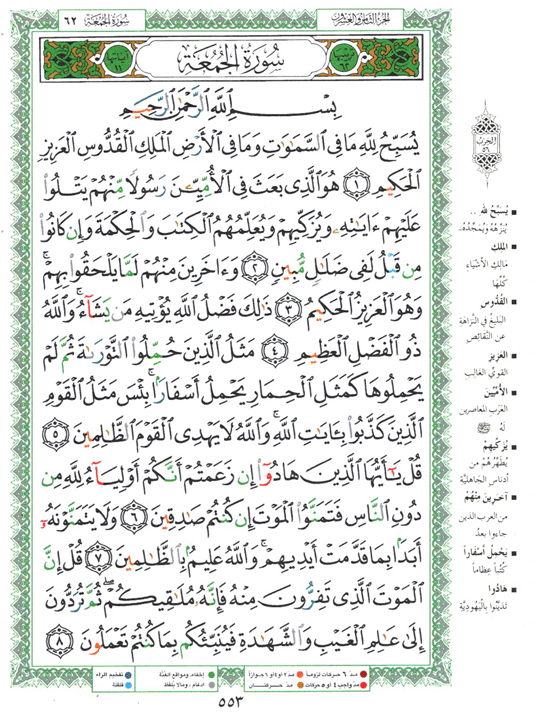 الجزء الثامن والعشرون
سُورَةُ الْجُمُعَة ٦٢
سُورَةُ الْجُمُعَة
بِسْمِ اللَّهِ الرَّحْمَٰنِ الرَّحِيمِ
يُسَبِّحُ لِلَّهِ مَا فِي السَّمَاوَاتِ وَمَا فِي الْأَرْضِ الْمَلِكِ الْقُدُّوسِ الْعَزِيزِ
الْحَكِيمِ ١ هُوَ الَّذِي بَعَثَ فِي الْأُمِّيِّينَ رَسُولًا مِّنْهُمْ يَتْلُوا
عَلَيْهِمْ آيَاتِهِ وَيُزَكِّيهِمْ وَيُعَلِّمُهُمُ الْكِتَابَ وَالْحِكْمَةَ وَإِن كَانُوا
مِن قَبْلُ لَفِي ضَلَالٍ مُّبِينٍ ٢ وَآخَرِينَ مِنْهُمْ لَمَّا يَلْحَقُوا بِهِمْ ۚ
وَهُوَ الْعَزِيزُ الْحَكِيمُ ٣ ذَٰلِكَ فَضْلُ اللَّهِ يُؤْتِيهِ مَن يَشَاءُ ۚ وَاللَّهُ
ذُو الْفَضْلِ الْعَظِيمِ ٤ مَثَلُ الَّذِينَ حُمِّلُوا التَّوْرَاةَ ثُمَّ لَمْ
يَحْمِلُوهَا كَمَثَلِ الْحِمَارِ يَحْمِلُ أَسْفَارًا ۚ بِئْسَ مَثَلُ الْقَوْمِ
الَّذِينَ كَذَّبُوا بِآيَاتِ اللَّهِ ۚ وَاللَّهُ لَا يَهْدِي الْقَوْمَ الظَّالِمِينَ ٥
قُلْ يَا أَيُّهَا الَّذِينَ هَادُوا إِن زَعَمْتُمْ أَنَّكُمْ أَوْلِيَاءُ لِلَّهِ مِن
دُونِ النَّاسِ فَتَمَنَّوُا الْمَوْتَ إِن كُنتُمْ صَادِقِينَ ٦ وَلَا يَتَمَنَّوْنَهُ
أَبَدًا بِمَا قَدَّمَتْ أَيْدِيهِمْ ۚ وَاللَّهُ عَلِيمٌ بِالظَّالِمِينَ ٧ قُلْ إِنَّ
الْمَوْتَ الَّذِي تَفِرُّونَ مِنْهُ فَإِنَّهُ مُلَاقِيكُمْ ۖ ثُمَّ تُرَدُّونَ
إِلَىٰ عَالِمِ الْغَيْبِ وَالشَّهَادَةِ فَيُنَبِّئُكُم بِمَا كُنتُمْ تَعْمَلُونَ ٨
الحزب
٥٦
■ يُسَبِّحُ لله ..
يُنَزِّهُهُ ويُمَجِّدُهُ..
■ الملك
مَالِكِ الأشْيَاءِ
كُلِّهَا
■ القُدُّوس
البليغ في النَّزاهة
عن النَّقائص
■ العزيز
القويّ الغالب
■ الأُمِّيّين
العَرَب المعاصرين
لَهُ ﷺ
■ يُزَكِّيهم
يُطَهِّرُهُمْ من
أدناس الجاهليَّة
■ آخَرينَ مِنْهُم
من العرب الذين
جاءوا بعدُ
■ يَحْمِلُ أسْفاراً
كُتُباً عِظاماً
■ هَادُوا
تَدَيَّنُوا باليَهُوديَّة
مد ٦ حركات لزوماً
مد ٢ أو ٤ أو ٦ جوازاً
إخفاء، ومواقع الغُنَّة
تفخيم الراء
مد واجب ٤ أو ٥ حركات
مد حركتان
ادغام، وما لا يُلفَظ
قلقلة
٥٥٣